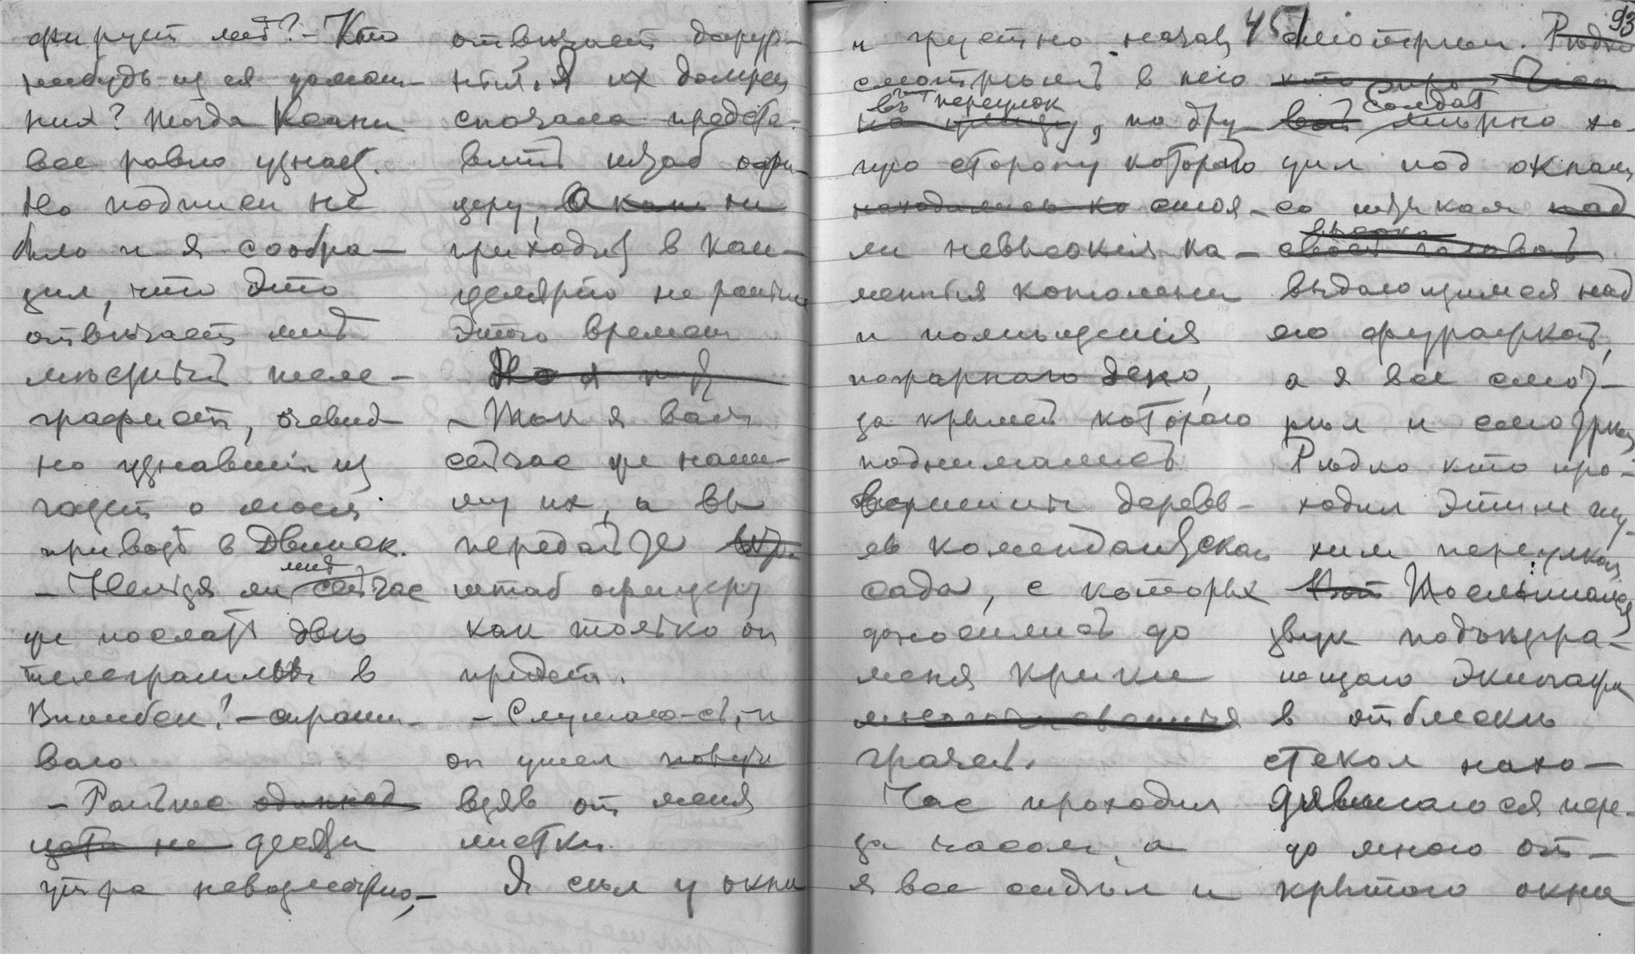 фирует мнѣ? – Кто
нибудь из ея домаш-
них? Тогда Ксани
все равно узнает.
Но подписи не
было и я сообра-
зил, что это
отвѣчает мнѣ
мѣстный теле-
графист, очевид-
но узнавший из
газет о моем
приѣздѣ в Двинск.
– Нельзя ли мнѣ сейчас
же послать двѣ
телеграммы в
Витебск? – спраши-
ваю.
– Раньше
десяти
утра невозможно, –
отвѣчает дежур-
ный. Я их должен
сначала предста-
вить штаб офи-
церу, а он не
приходит в кан-
целярию не раньше
этого времени
– Так я вам
сейчас же напи-
шу их, а вы
передайте
штаб офицеру
как только он
придет.
– Слушаю-съ, и
он ушел
взяв от меня
листки.
Я сѣл у окна
и грустно начал
смотрѣть в него
въ переулок, по дру-
гую сторону которого
стоя-
ли невысокия ка-
менныя
и помѣщения
пожарнаго депо,
за крышей которого
поднимались
вершины деревь-
ев комендантскаго
сада, с которых
доносились до
меня крики
грачей.
Час проходил
за часом, а
я все сидѣл и
451 93
смотрѣл. Рѣдко
Солдат мѣрно хо-
дил под окнами
со штыком
высоко
выдающимся над
его фуражкой,
а я все смот-
рѣл и смотрѣл
Рѣдко кто про-
ходил этим глу-
хим переулком.
Послышался
звук подъѣзжа-
ющаго экипажа
и в отблеске
стекол нахо-
дившагося пере-
до мною от-
крытого окна